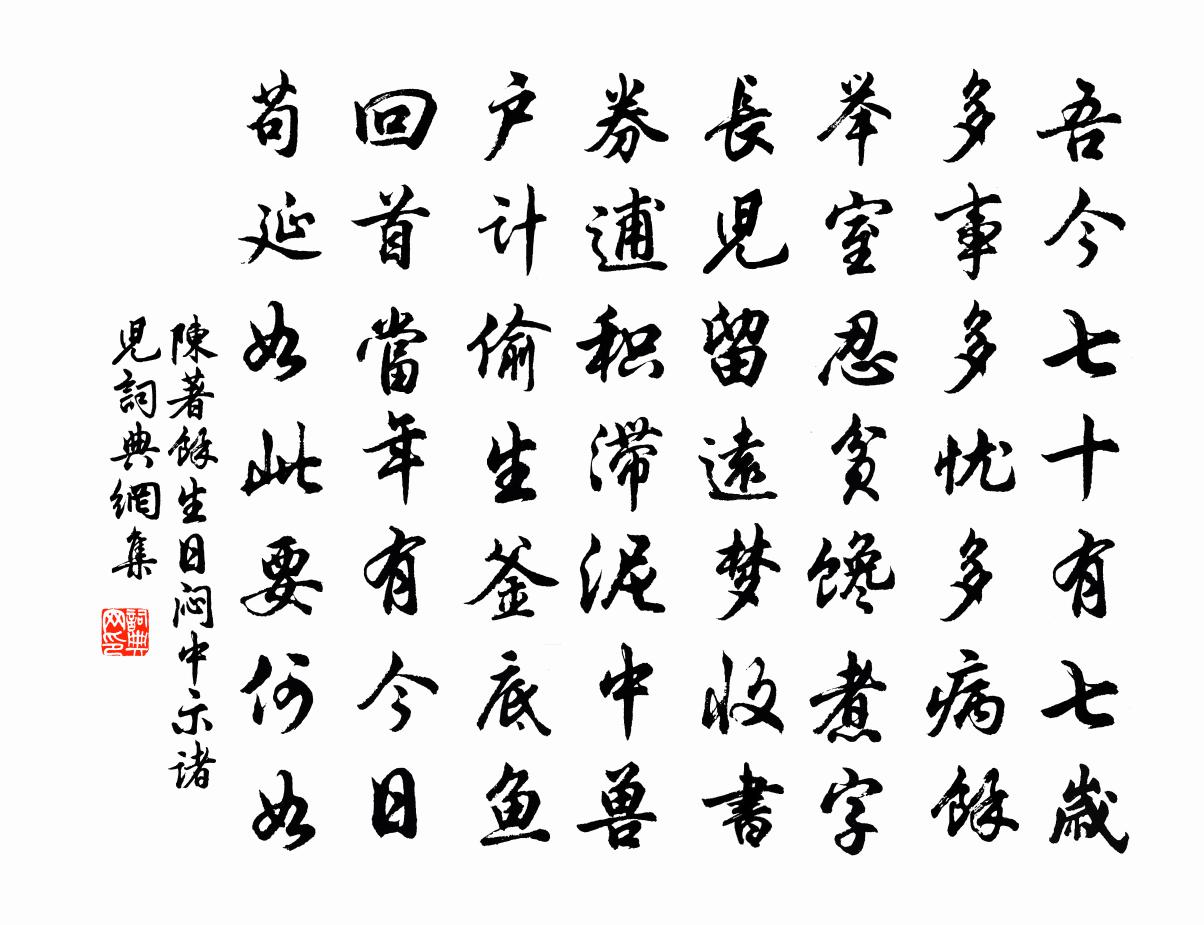 吾今七十有七歲
多事多忧多病餘
举室忍贫馋煮字
長児留遠梦收書
券逋积滞泥中兽
户计偷生釜底鱼
回首當年有今日
苟延如此要何如
陳著餘生日闷中示诸
児詞典網集
詞典
网印